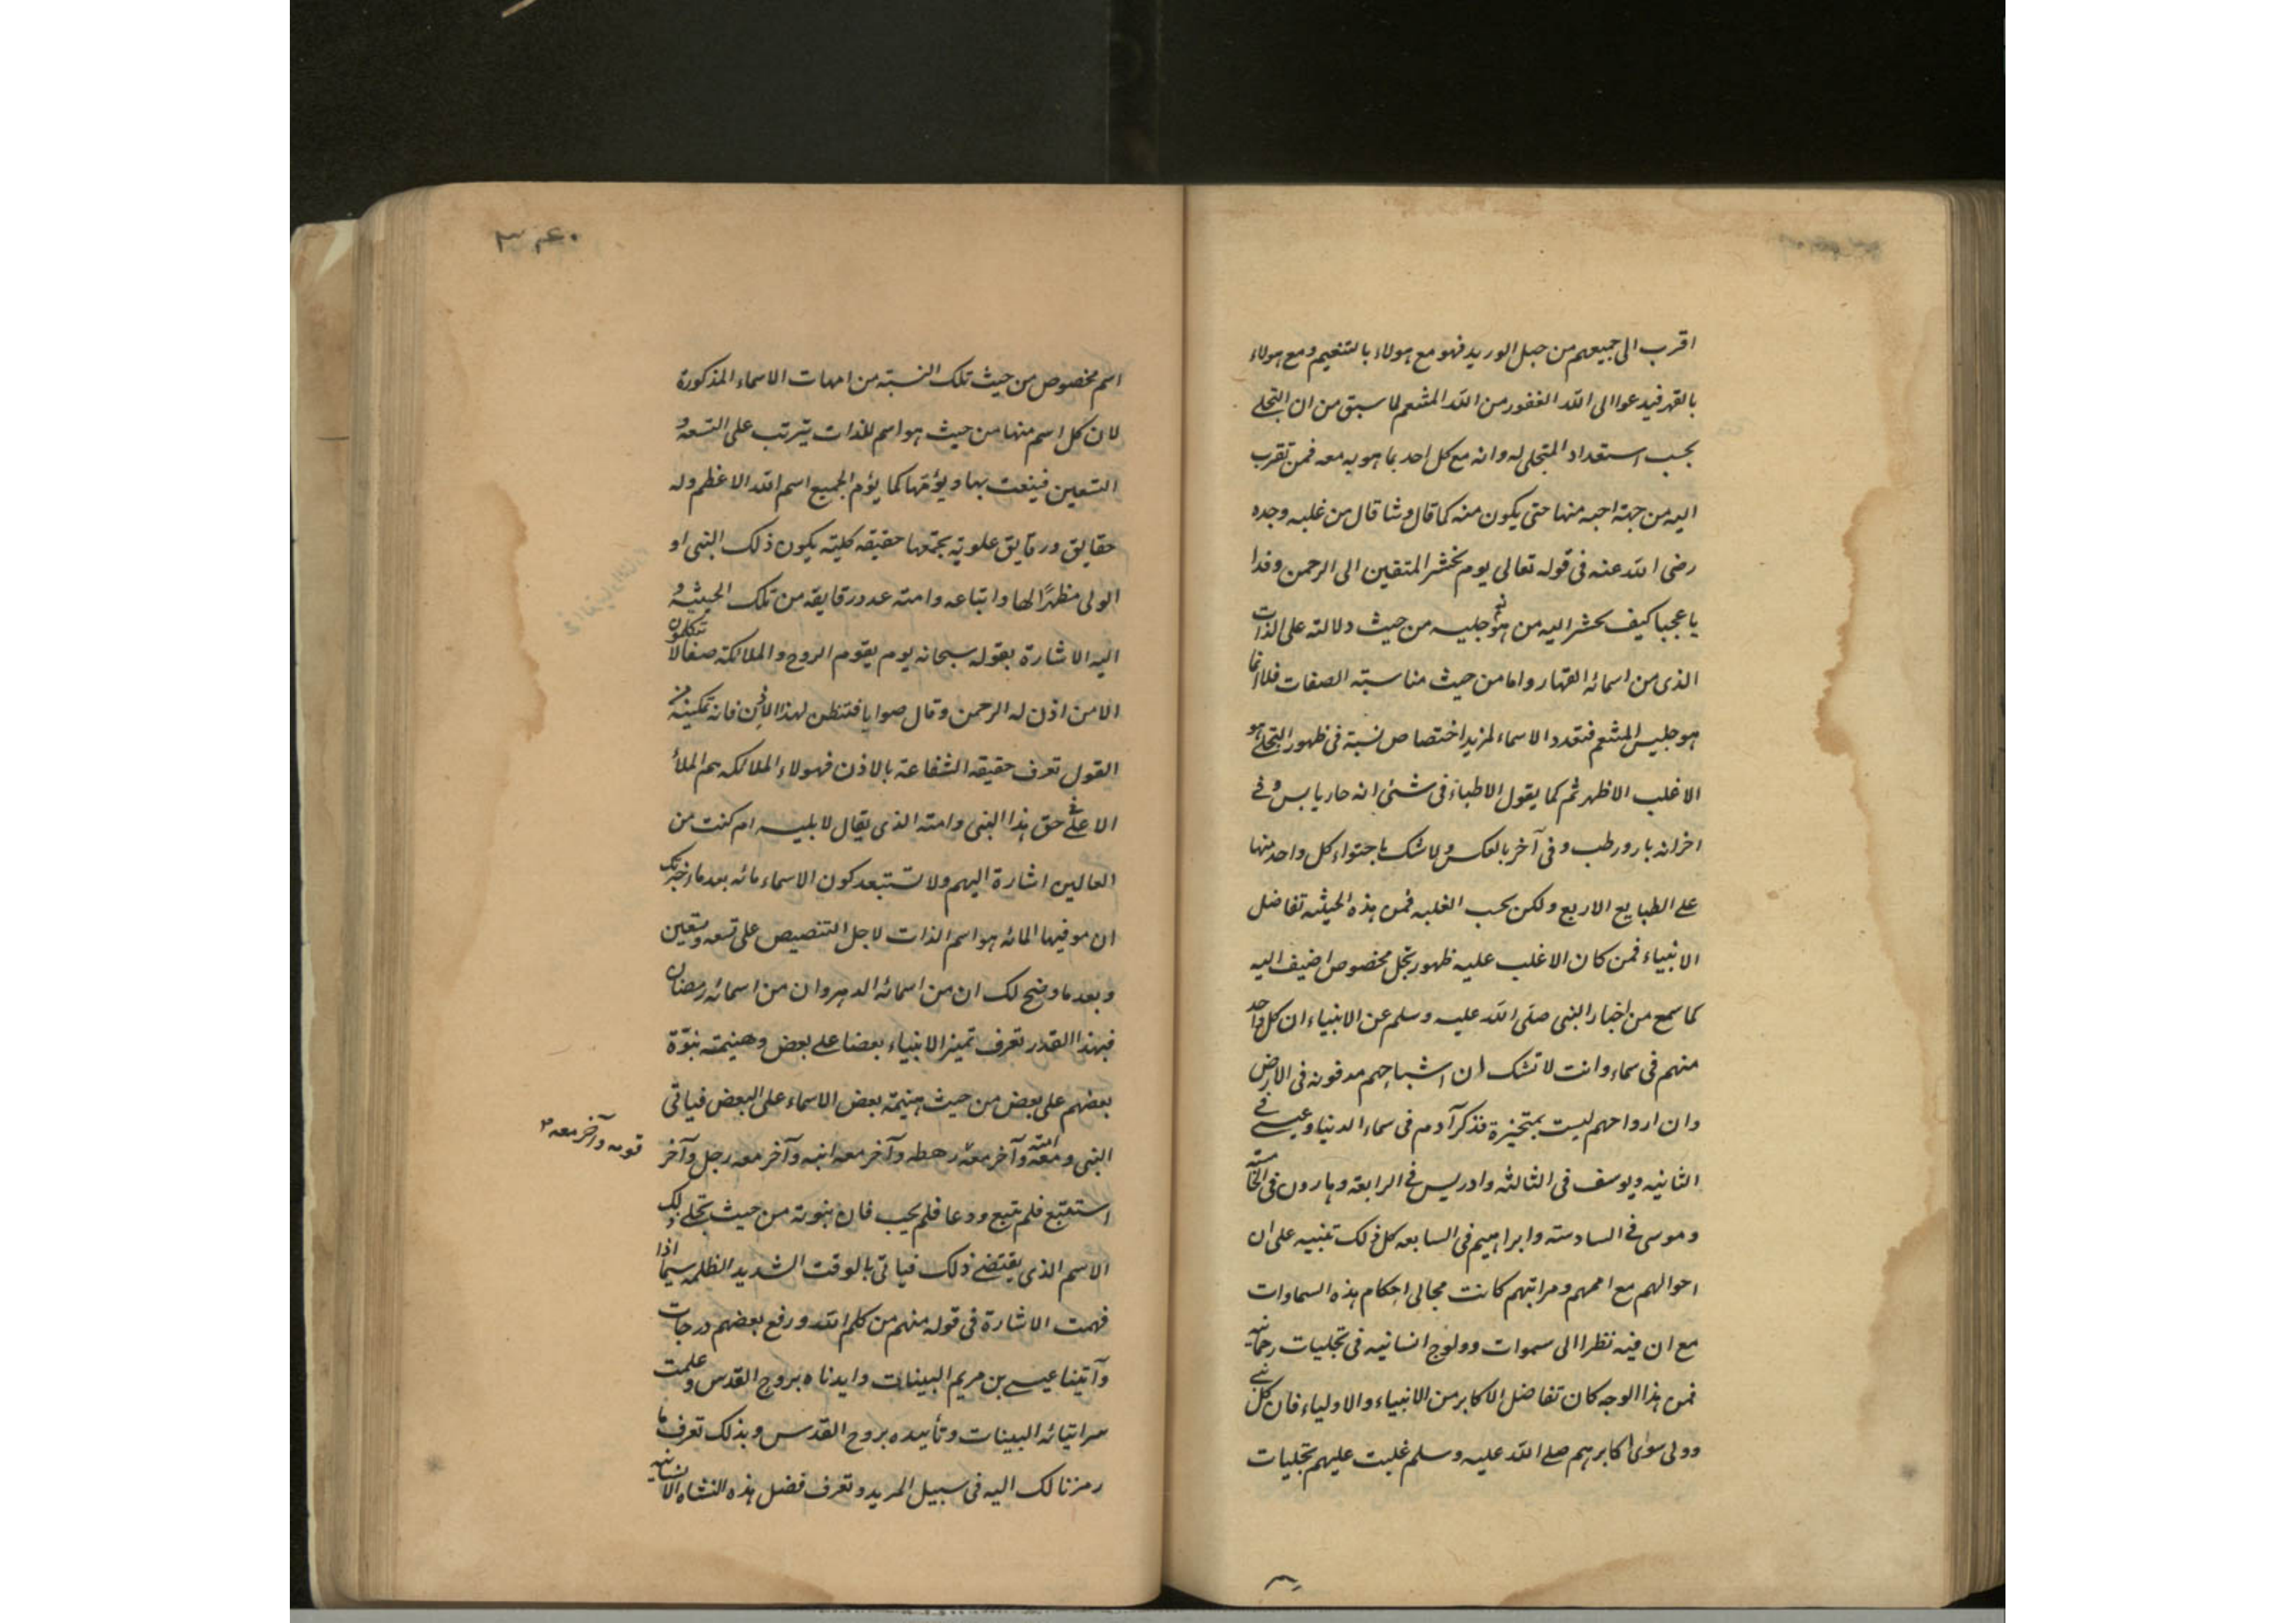 اقرب الى جميعهم من حبل الوريد فهو مع هولاء بالتنعيم ومع هولاء
بالقهر فيدعوا الى الله الغفور من الله المنتقم لما سبق من ان التجلے
بحسب استعداد المتجلى له وانه مع كل احد بما هو به معه فمن تقرب
اليه من جهة احبه منها حتى يكون منه كما قال وشا قال من غلبه وجده
رضى الله عنه فى قوله تعالى يوم نحشر المتقين الى الرحمن وفدا
يا عجبا كيف يحشر اليه من هو جليسه من حيث دلالته على الذات
الذى من اسمائه القهار واما من حيث مناسبة الصفات فلا انما
هو جليس المنتقم فتعدد الاسماء لمزيد اختصاص نسبة فى ظهور التجلے هو
الاغلب الاظهر ثم كما يقول الاطباء فى شئ انه حار يابس وفے
اخر انه بارد رطب وفى آخر بالعكس ولا شك باحتواء كل واحد منها
على الطبايع الاربع ولكن بحسب الغلبه فمن هذه الحيثه تفاضل
الانبياء فمن كان الاغلب عليه ظهور تجل مخصوص اضيف اليه
كما سمع من اخبار النبى صلى الله عليه وسلم عن الانبياء ان كل واحد
منهم فى سماء وانت لا تشك ان اشباحهم مدفونه فى الارض
وان ارواحهم ليست بمتحيزة فذكر آدم فى سماء الدنيا وعيسے فے
الثانيه ويوسف فى الثالثه وادريس فے الرابعة وهارون فى الخامسته
وموسى فے السادسته وابراهيم فى السابعه كل ذلك تنبيه على ان
احوالهم مع اممهم ومراتبهم كانت مجالى احكام هذه السماوات
مع ان فيه نظرا الى سموات وولوج انسانيه فى تجليات رحمانيه
فمن هذا الوجه كان تفاضل الاكابر من الانبياء والاولياء فان كل نبے
وولى سوى اكابرهم صلے الله عليه وسلم غلبت عليهم تجليات
۳۴۰
اسم مخصوص من حيث تلك النسبته من امهات الاسماء المذكورة
لان كل اسم منها من حيث هو اسم للذات يترتب على التسعة و
التسعين فينعت بها ويؤمها كما يؤم الجميع اسم الله الاعظم وله
حقايق ورقايق علويه يجمعها حقيقه كليته يكون ذلك النبى او
الولى مظهرًا لها واتباعه وامته عدد رقايقه من تلك الحيثيه و
اليه الاشارة بقوله سبحانه يوم يقوم الروح والملائكته صفا لا يتكلمون
الا من اذن له الرحمن وقال صوابا فتفطن لهذا الاذن فانه تمكينه من
القول تعرف حقيقه الشفاعة بالاذن فهولاء الملائكه هم الملأ
الاعلے فى حق هذا النبى وامته الذى يقال لابليس ام كنت من
العالين اشارة اليهم ولا تستبعد كون الاسماء مائه بعد ما اخبرتك
ان موفيها المائه هو اسم الذات لاجل التنصيص على تسعه وتسعين
وبعد ما وضح لك ان من اسمائه الدهر وان من اسمائه رمضان
فبهذا القدر تعرف تميز الانبياء بعضا على بعض وهيمنة نبوّة
بعضهم على بعض من حيث هيمنة بعض الاسماء على البعض فياتى
النبى ومعه امته وآخر معه رهطه وآخر معه ابنه وآخر معه رجل وآخر
قومه وآخر معه
استتبع فلم يتبع ودعا فلم يجب فان نبوته من حيث تجلے ذلك
الاسم الذى يقتضے ذلك فياتى بالوقت الشديد الظلمه سيما اذا
فهمت الاشارة فى قوله منهم من كلم الله ورفع بعضهم درجات
وآتينا عيسے بن مريم البينات وايدناه بروح القدس وعلمت
سر اتيانه البينات وتأييده بروح القدس وبذلك تعرف ما
رمزنا لك اليه فى سبيل المريد وتعرف فضل هذه النشاه الانسانيه